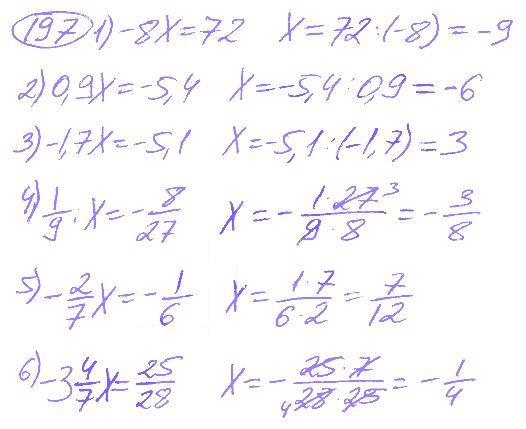 197 1) -8x=72 x=72:(-8)=-9
2) 0,9x=-5,4 x=-5,4:0,9=-6
3) -1,7x=-5,1 x=-5,1:(-1,7)=3
4) 1/9:x=-8/27 x=-(1·27 3)/(9·8)=-3/8
5) -2/7x=-1/6 x=(1·7)/(6·2)=7/12
6) -3 4/7x=25/28 x=-(25·7)/(4 28·25)=-1/4